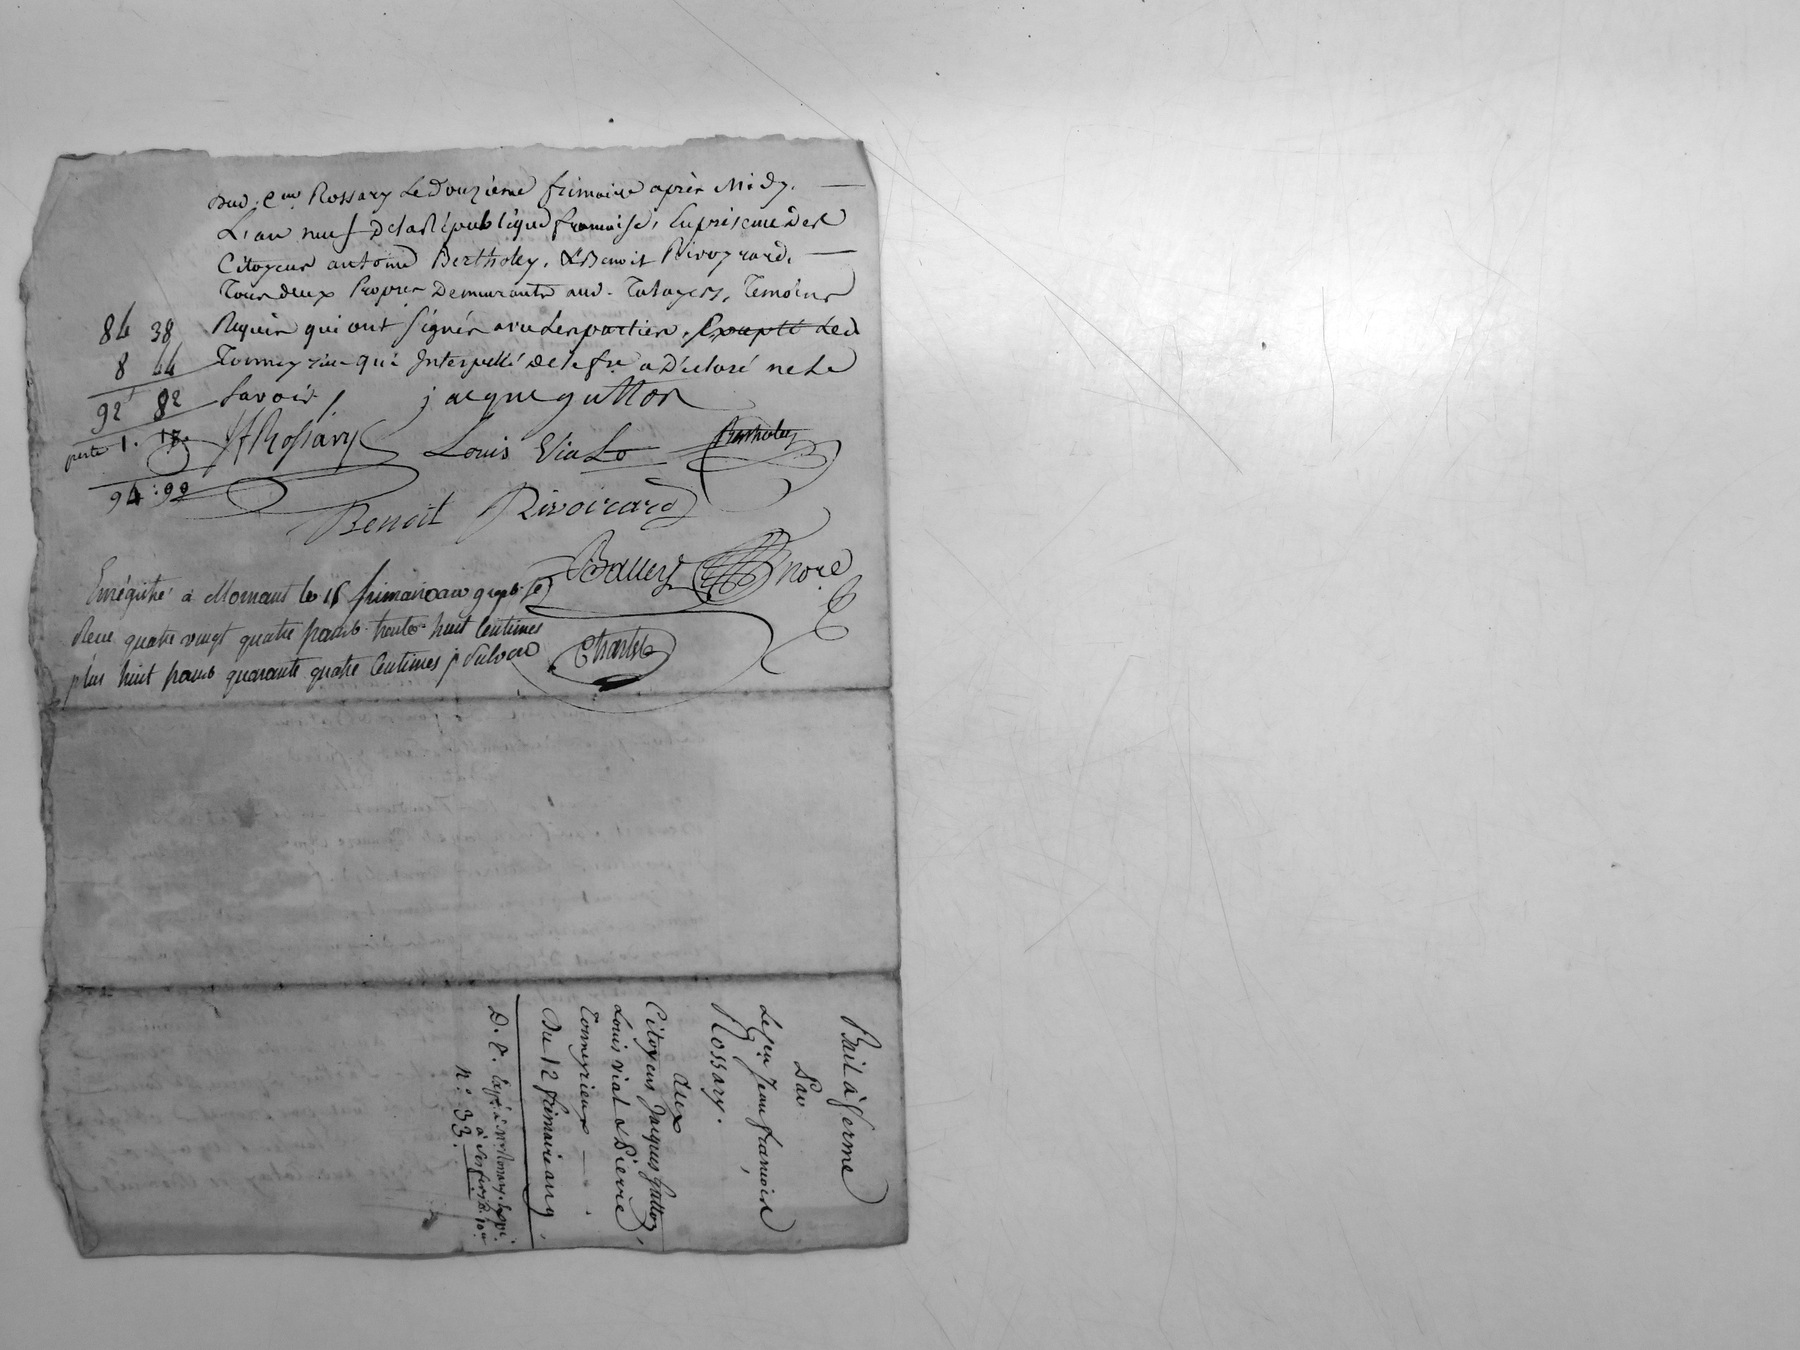 Dud. Cen. Rossary Le Douzième frimaire après Midy.
L'an neuf De la République francoise, En présence des
Citoyens antoine Bertholey, & Benoit Rivoyrard,
Tous deux Propres Demeurants aud. Taluyers, Temoins
Requis qui ont signés avec Les parties, Excepté led
Tonneyrieu qui Interpellé de le fre a Déclaré ne Le
Savoir,
84 38
8 44
92 82
perte 1. 17.
94 : 99
jacque gutton
JfRossary
Louis Vial
Bertholey
Benoit Rivoirard
Ballery Nore
Enrégistré à Mornant le 15 frimaire an 9
Reçu quatre vingt quatre francs trente huit Centimes
plus huit francs quarante quatre Centimes p. Subvon
Charles
Bail à ferme
Par
Le Cen Jean françois
Rossary.
aux
Citoyens Jacques Gutton,
Louis Vial & Pierre
Tonneyrieux
Du 12 frimaire an 9,
D. E. Expé. à Mr Rossary.
n.º 33.